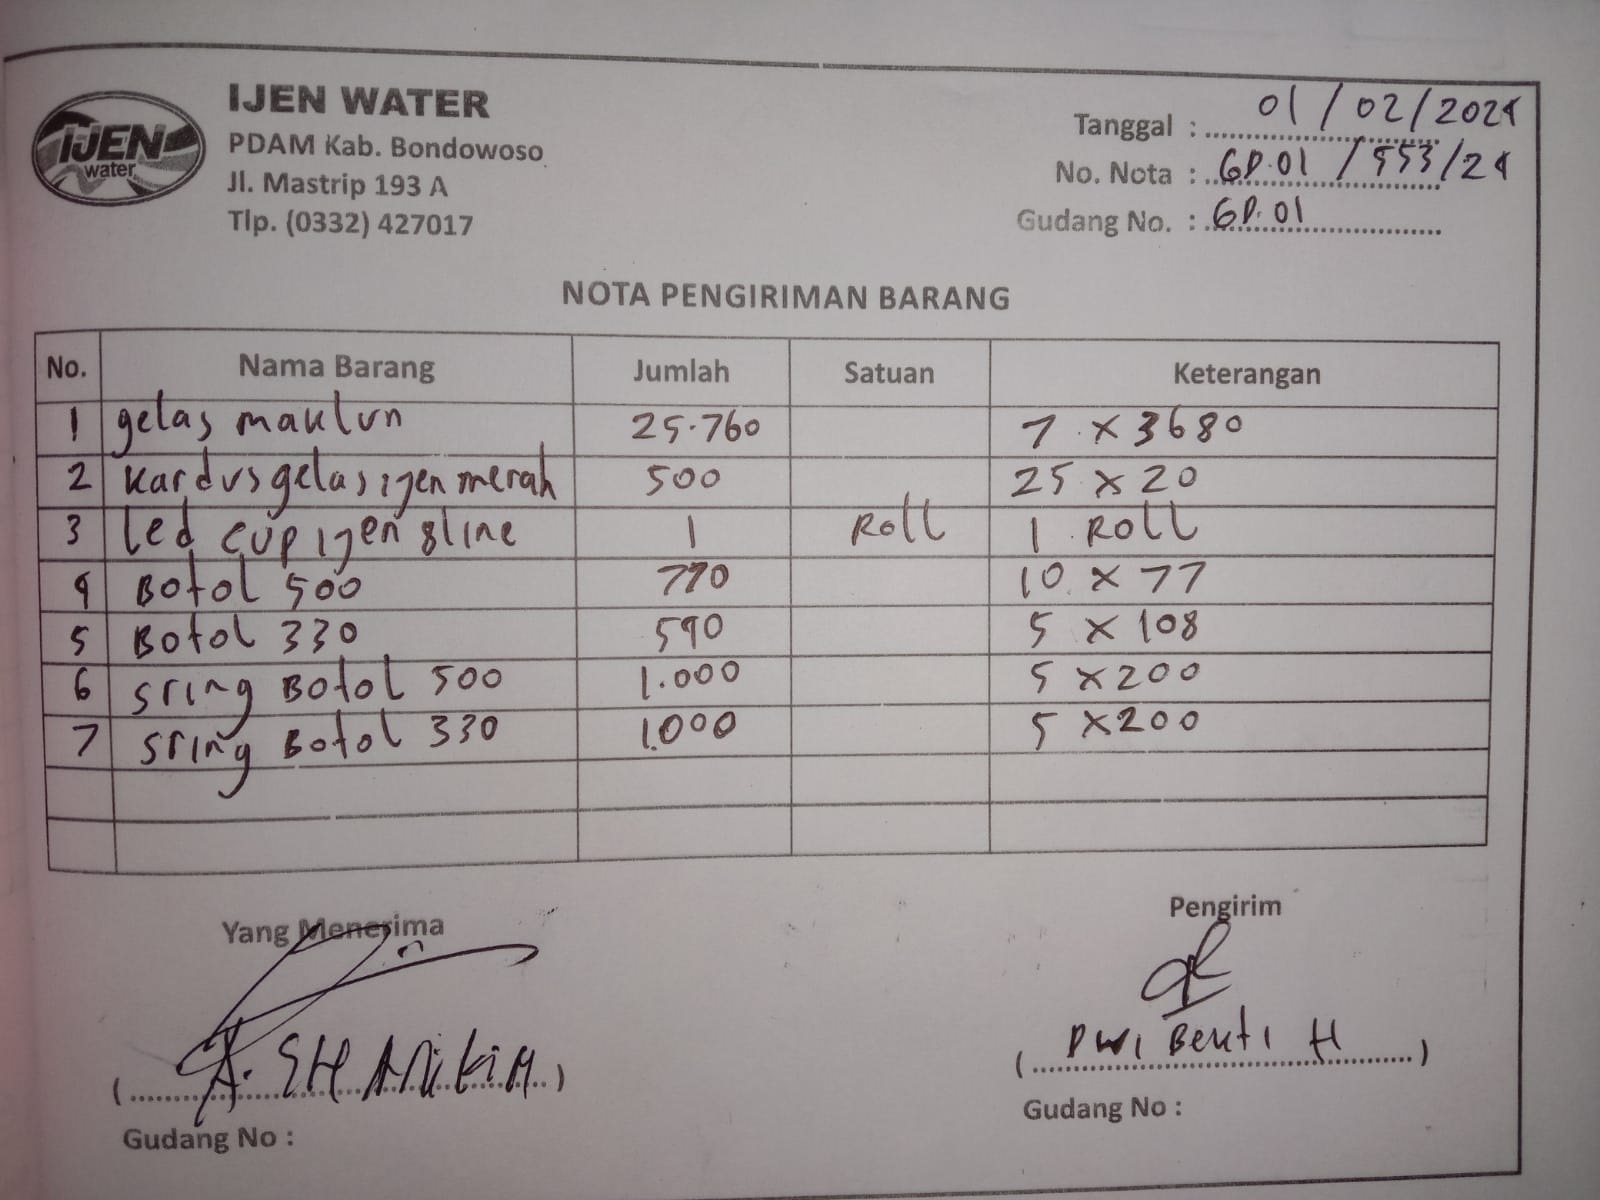 IJEN
water
IJEN WATER
PDAM Kab. Bondowoso
Jl. Mastrip 193 A
Tlp. (0332) 427017
Tanggal : 01 / 02 / 2024
No. Nota : GD.01 / 553 / 24
Gudang No. : GD.01
NOTA PENGIRIMAN BARANG
No. Nama Barang Jumlah Satuan Keterangan
1 gelas maklun 25.760 7 x 3680
2 kardus gelas ijen merah 500 25 x 20
3 Led cup ijen 8line 1 Roll 1 Roll
4 Botol 500 770 10 x 77
5 Botol 330 540 5 x 108
6 sring Botol 500 1.000 5 x 200
7 sring Botol 330 1.000 5 x 200
Yang Menerima Pengirim
( Dwi Bekti H )
Gudang No : Gudang No :